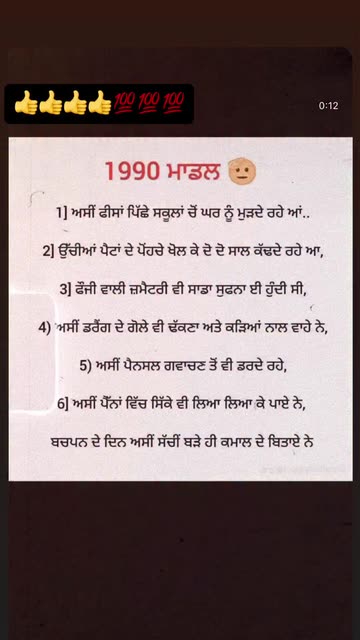 👍👍👍👍💯💯💯
0:12
1990 ਮਾਡਲ 🫡
1] ਅਸੀਂ ਫੀਸਾਂ ਪਿੱਛੇ ਸਕੂਲਾਂ ਚੋਂ ਘਰ ਨੂੰ ਮੁੜਦੇ ਰਹੇ ਆਂ..
2] ਉੱਚੀਆਂ ਪੈਟਾਂ ਦੇ ਪੋਂਹਚੇ ਖੋਲ ਕੇ ਦੋ ਦੋ ਸਾਲ ਕੱਢਦੇ ਰਹੇ ਆ,
3] ਫੌਜੀ ਵਾਲੀ ਜ਼ਮੈਟਰੀ ਵੀ ਸਾਡਾ ਸੁਫਨਾ ਈ ਹੁੰਦੀ ਸੀ,
4) ਅਸੀਂ ਡਰੈਂਗ ਦੇ ਗੋਲੇ ਵੀ ਢੱਕਣਾ ਅਤੇ ਕੜਿਆਂ ਨਾਲ ਵਾਹੇ ਨੇ,
5) ਅਸੀਂ ਪੈਨਸਲ ਗਵਾਚਣ ਤੋਂ ਵੀ ਡਰਦੇ ਰਹੇ,
6] ਅਸੀਂ ਪੈੱਨਾਂ ਵਿੱਚ ਸਿੱਕੇ ਵੀ ਲਿਆ ਲਿਆ ਕੇ ਪਾਏ ਨੇ,
ਬਚਪਨ ਦੇ ਦਿਨ ਅਸੀਂ ਸੱਚੀਂ ਬੜੇ ਹੀ ਕਮਾਲ ਦੇ ਬਿਤਾਏ ਨੇ